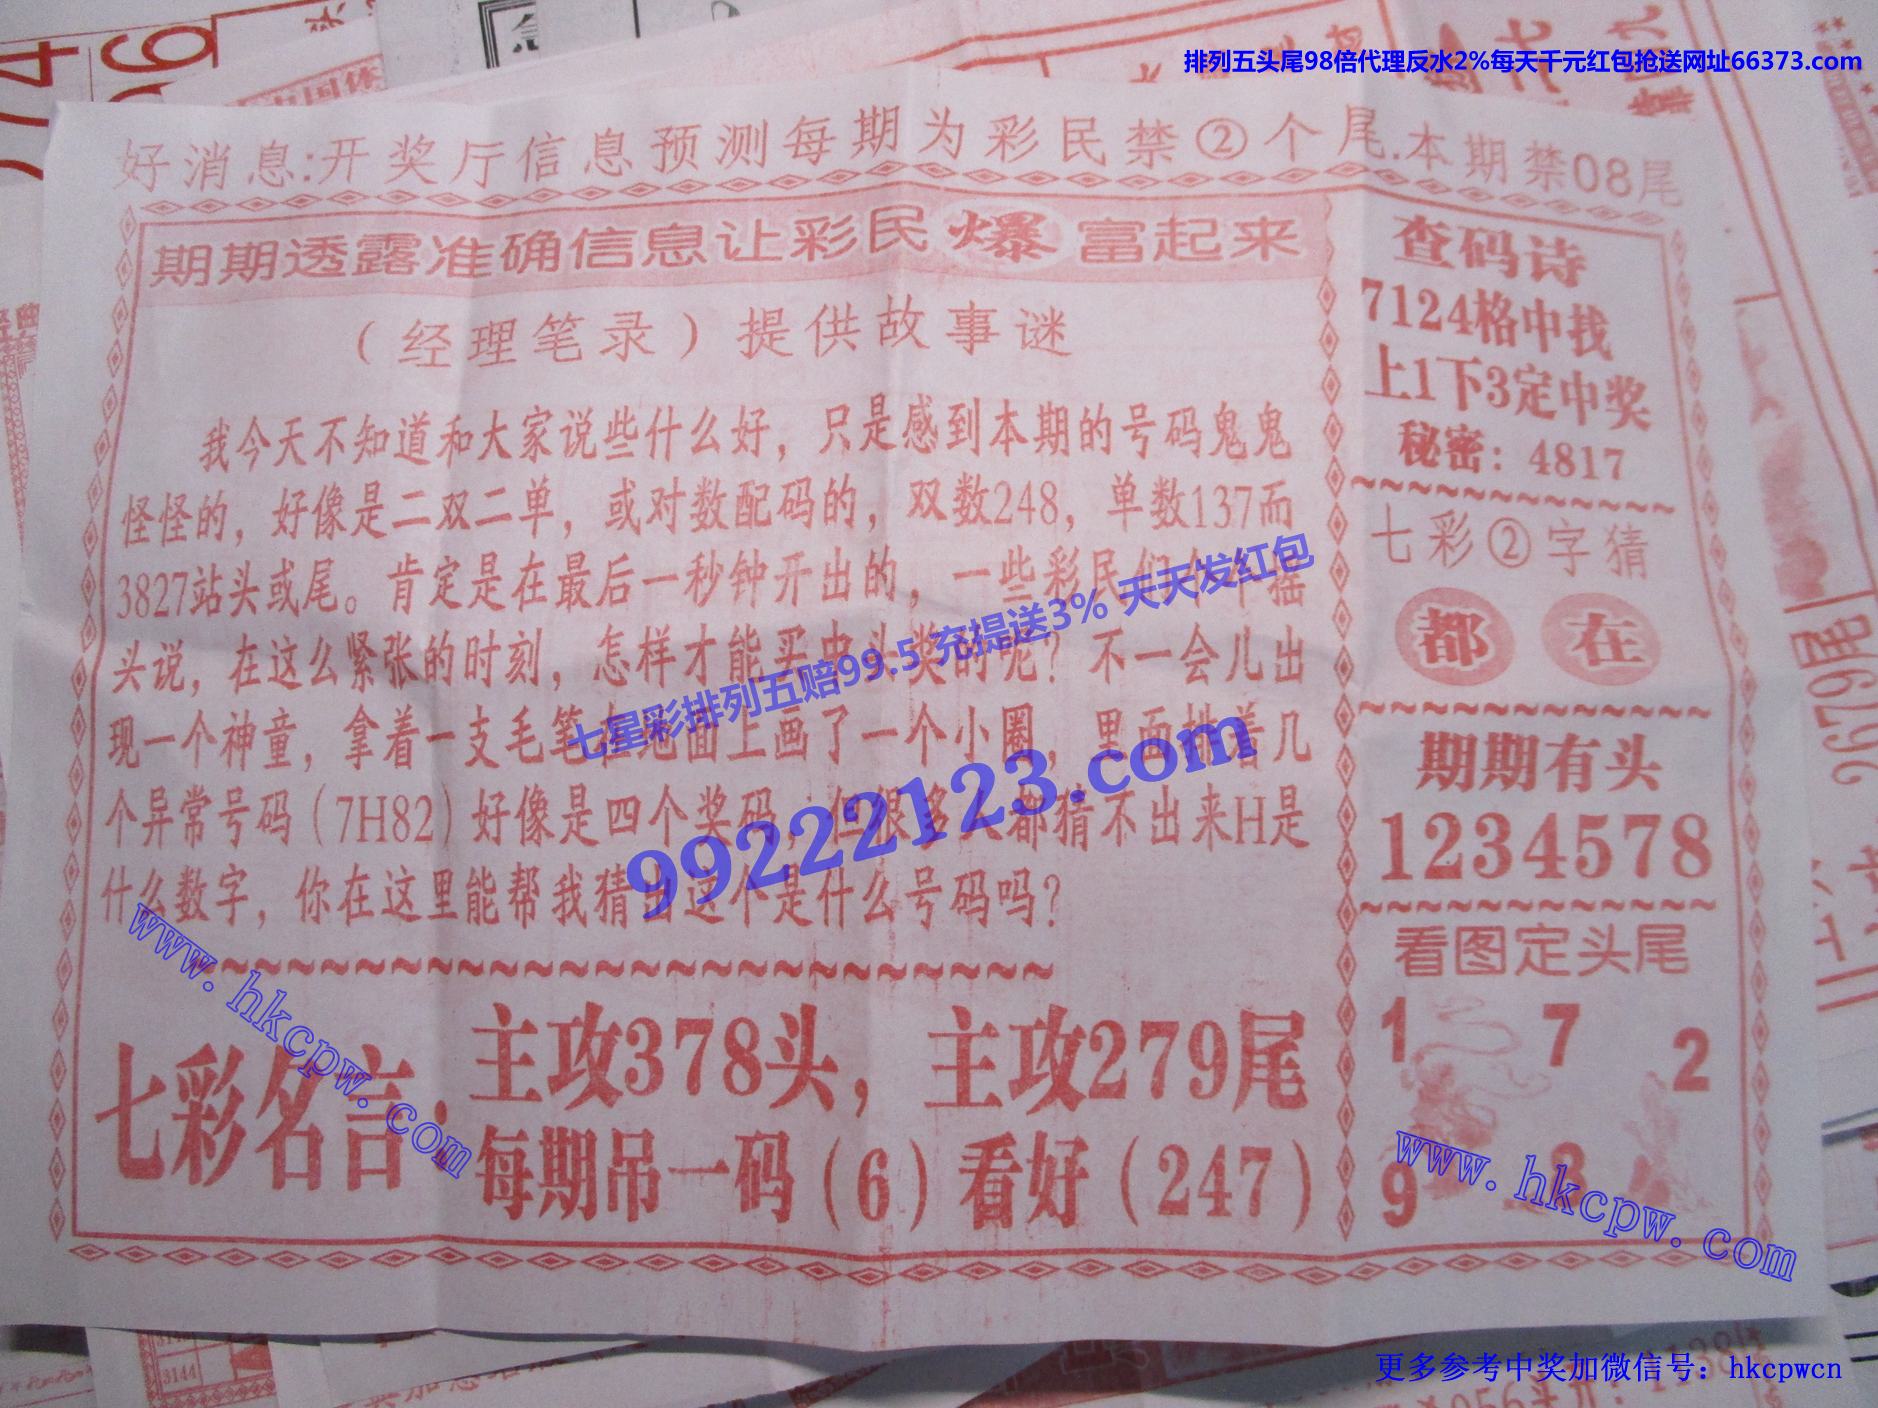 排列五头尾98倍代理反水2%每天千元红包抢送网址66373.com
好消息:开奖厅信息预测每期为彩民禁②个尾.本期禁08尾
期期透露准确信息让彩民爆富起来
（经理笔录）提供故事谜
我今天不知道和大家说些什么好，只是感到本期的号码鬼鬼
怪怪的，好像是二双二单，或对数配码的，双数248，单数137而
3827站头或尾。肯定是在最后一秒钟开出的，一些彩民们个个摇
头说，在这么紧张的时刻，怎样才能买中头奖的呢？不一会儿出
现一个神童，拿着一支毛笔在地面上画了一个小圈，里面排着几
个异常号码（7H82）好像是四个奖码，但很多人都猜不出来H是
什么数字，你在这里能帮我猜出这个是什么号码吗？
七星彩排列五赔99.5 充提送3% 天天发红包
99222123.com
七彩名言：
主攻378头，主攻279尾
每期吊一码（6）看好（247）
www.hkcpw.com
查码诗
7124格中找
上1下3定中奖
秘密：4817
七彩②字猜
都 在
期期有头
1234578
看图定头尾
1 7 2
9 3
www.hkcpw.com
更多参考中奖加微信号：hkcpwcn
2976尾
3144